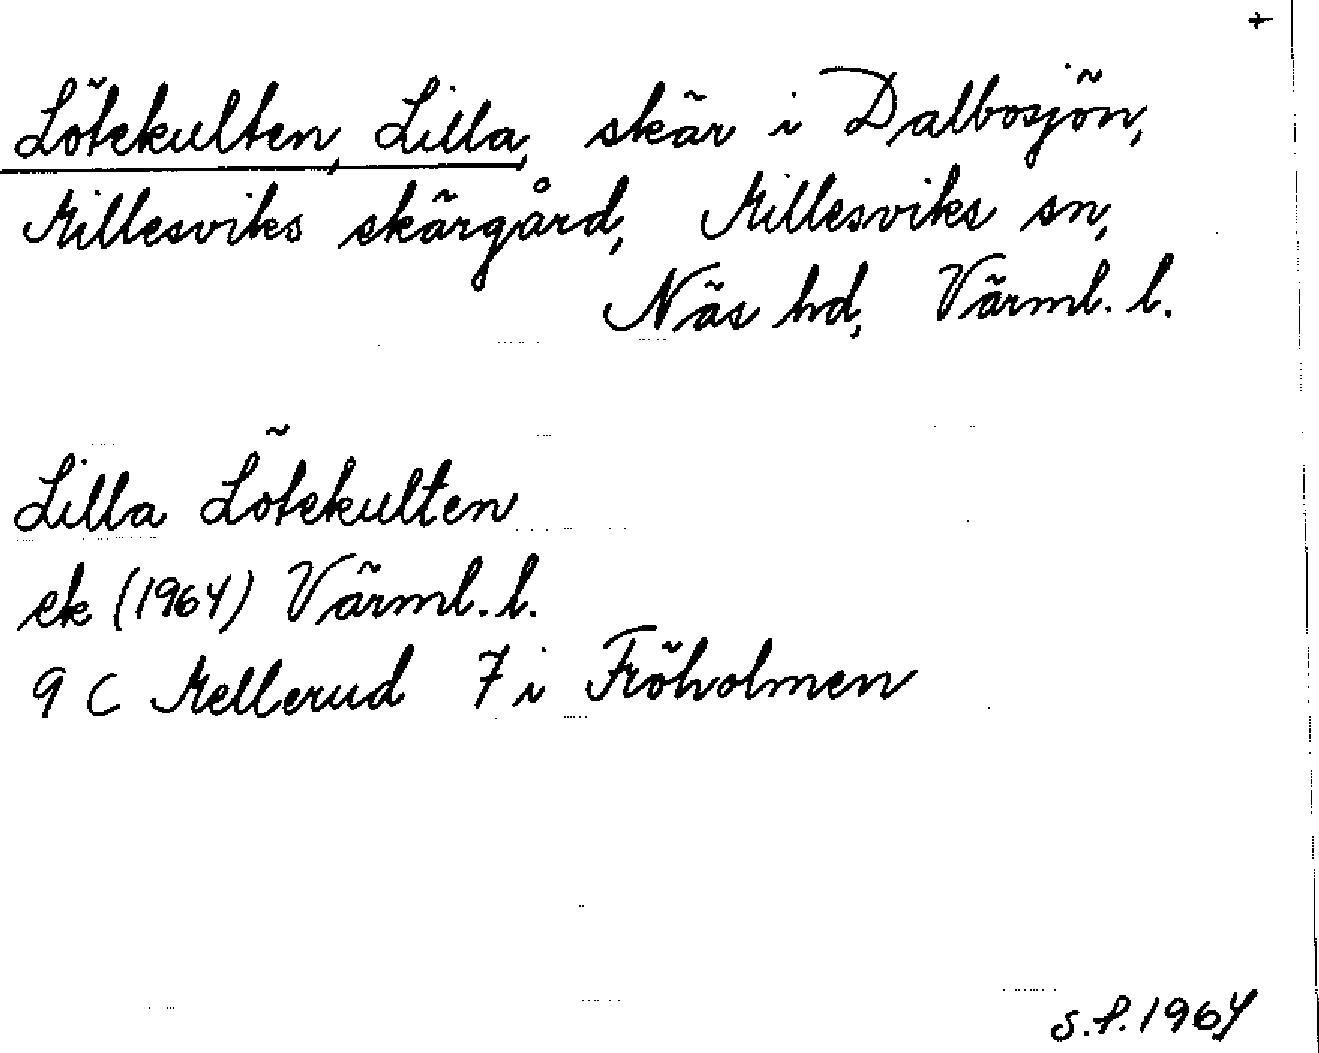 +
Lötekulten, Lilla, skär i Dalbosjön,
Millesviks skärgård, Millesviks sn,
Näs hd, Värml. l.
Lilla Lötekulten
ek (1964) Värml. l.
9 C Mellerud 7 i Fröholmen
S.P. 1964